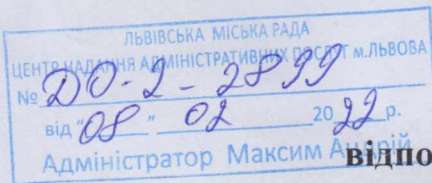 ЛЬВІВСЬКА МІСЬКА РАДА
ЦЕНТР НАДАННЯ АДМІНІСТРАТИВНИХ ПОСЛУГ м.ЛЬВОВА
№ ДО-2-2899
від "08" 02 2022 р.
Адміністратор Максим Андрій
відпо